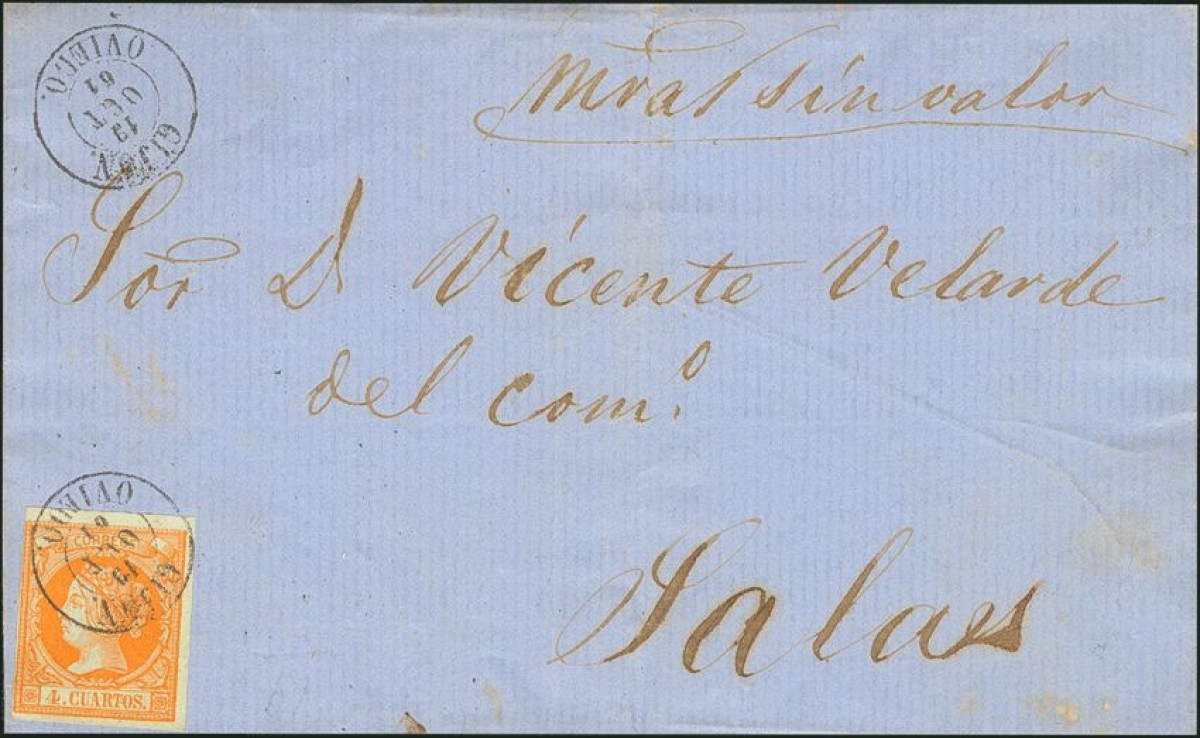 Mras sin valor
GIJON
19
OCT
61
OVIEDO.
Sor D Vicente Velarde
del comº
Salas
GIJON
19
OCT
61
OVIEDO.
CORREOS
4. CUARTOS.